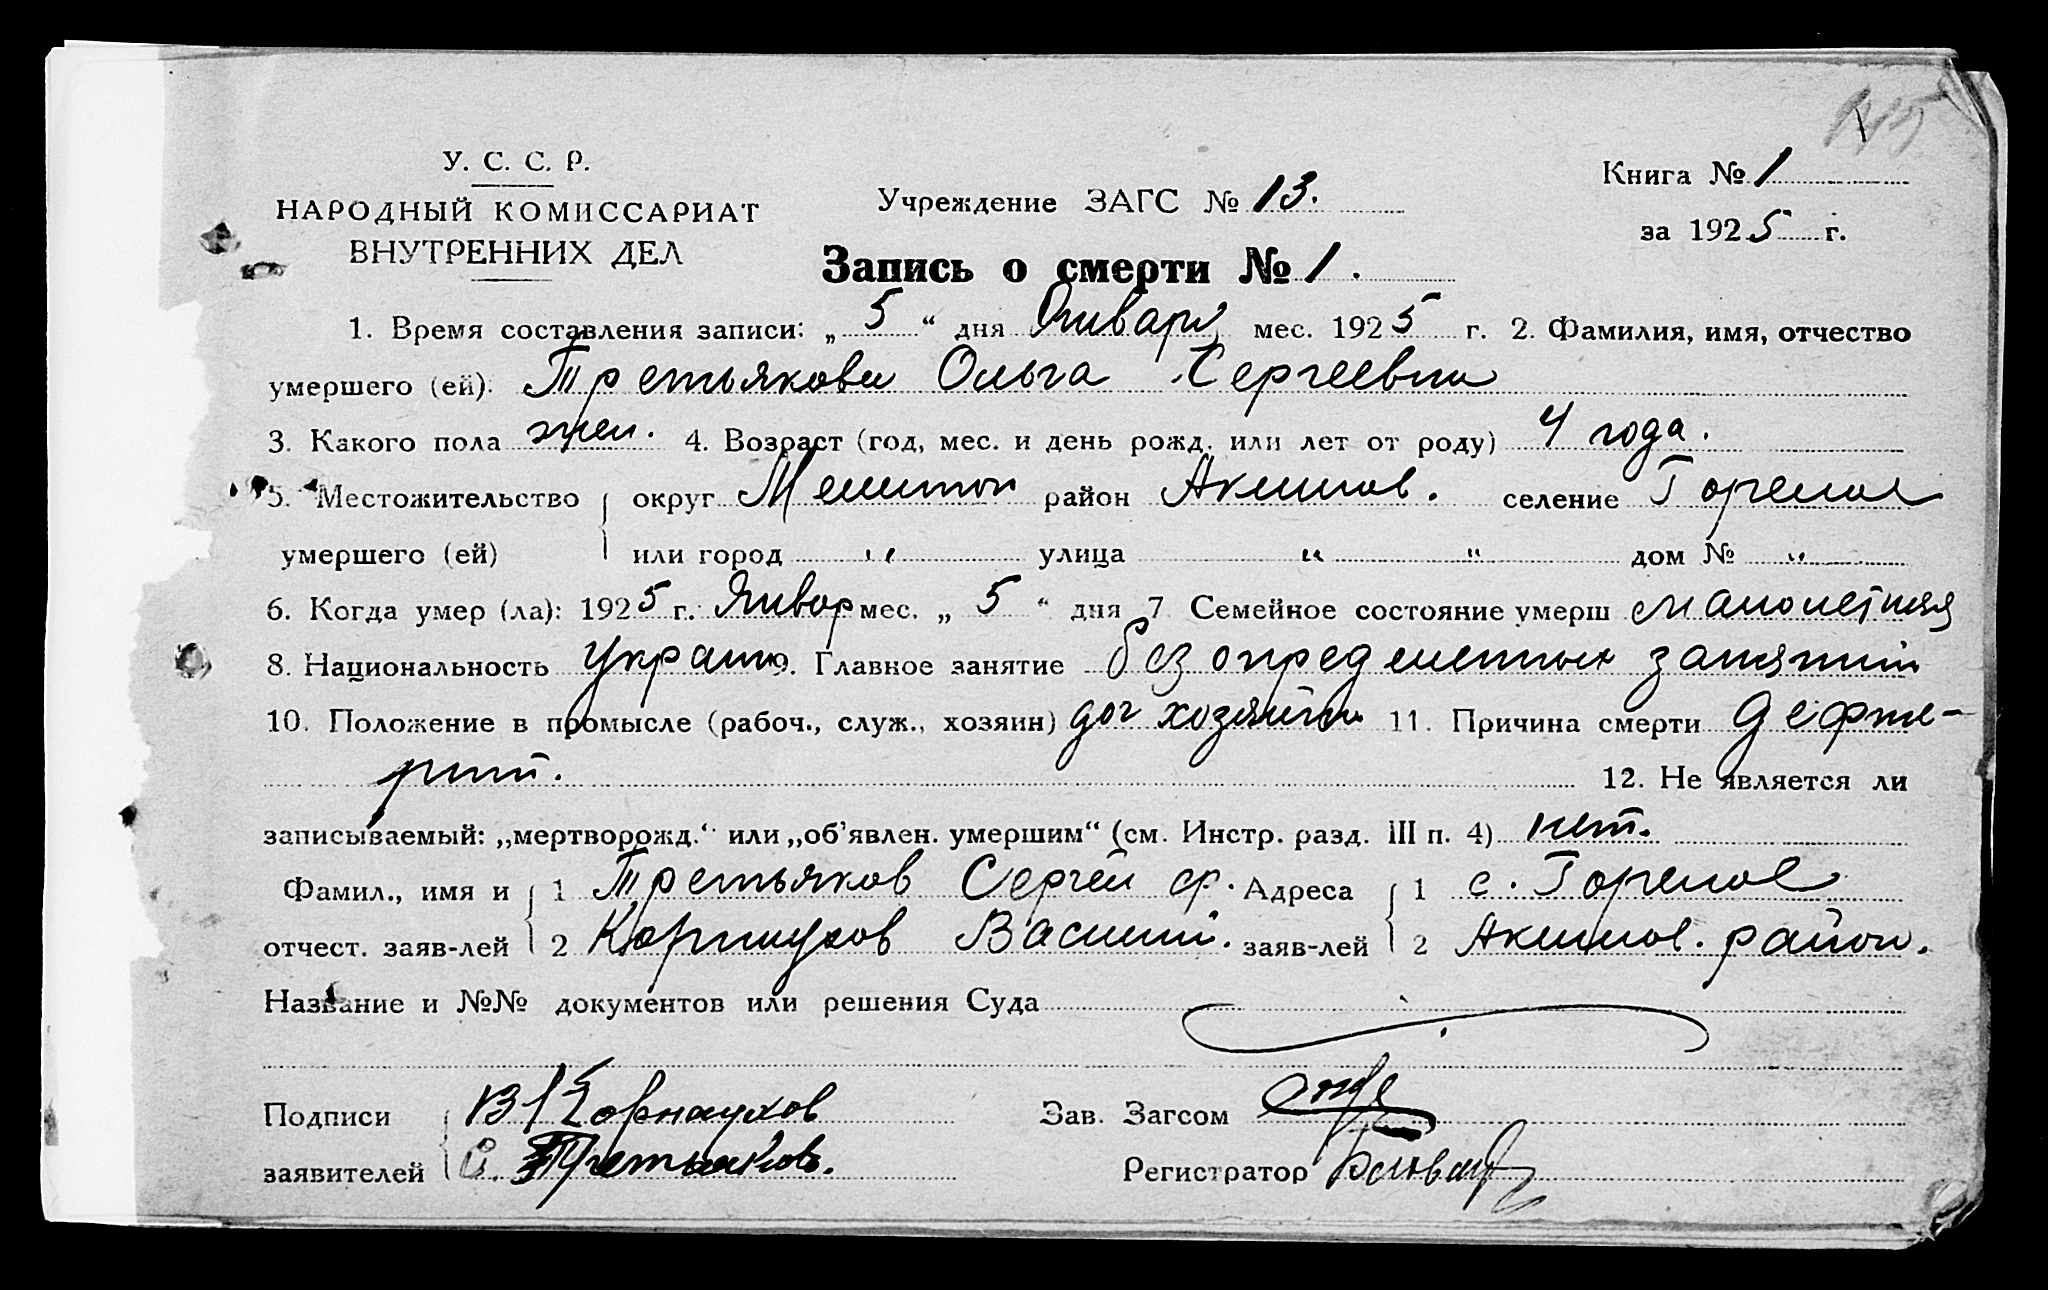 У. С. С. Р.
НАРОДНЫЙ КОМИССАРИАТ
ВНУТРЕННИХ ДЕЛ
Учреждение ЗАГС № 13.
Книга № 1
за 1925 г.
Запись о смерти № 1.
1. Время составления записи: „5“ дня Января мес. 1925 г. 2. Фамилия, имя, отчество
умершего (ей): Третьякова Ольга Сергеевна
3. Какого пола жен. 4. Возраст (год, мес. и день рожд. или лет от роду) 4 года.
5. Местожительство округ Мелитоп район Акимов. селение Горелое
умершего (ей) или город " улица " " дом № "
6. Когда умер (ла): 1925 г. Январ мес. „5“ дня 7 Семейное состояние умерш малолетняя
8. Национальность украин 9. Главное занятие без определенных занятий
10. Положение в промысле (рабоч., служ., хозяин) доч хозяина 11. Причина смерти Дефте-
рит. 12. Не является ли
записываемый: „мертворожд.“ или „об'явлен. умершим“ (см. Инстр. разд. III п. 4) нет.
Фамил., имя и 1 Третьяков Сергей ф. Адреса 1 с. Горелое
отчест. заяв-лей 2 Корнаухов Василий. заяв-лей 2 Акимов. район.
Название и №№ документов или решения Суда
Подписи В Корнаухов Зав. Загсом
заявителей С. Третьяков. Регистратор